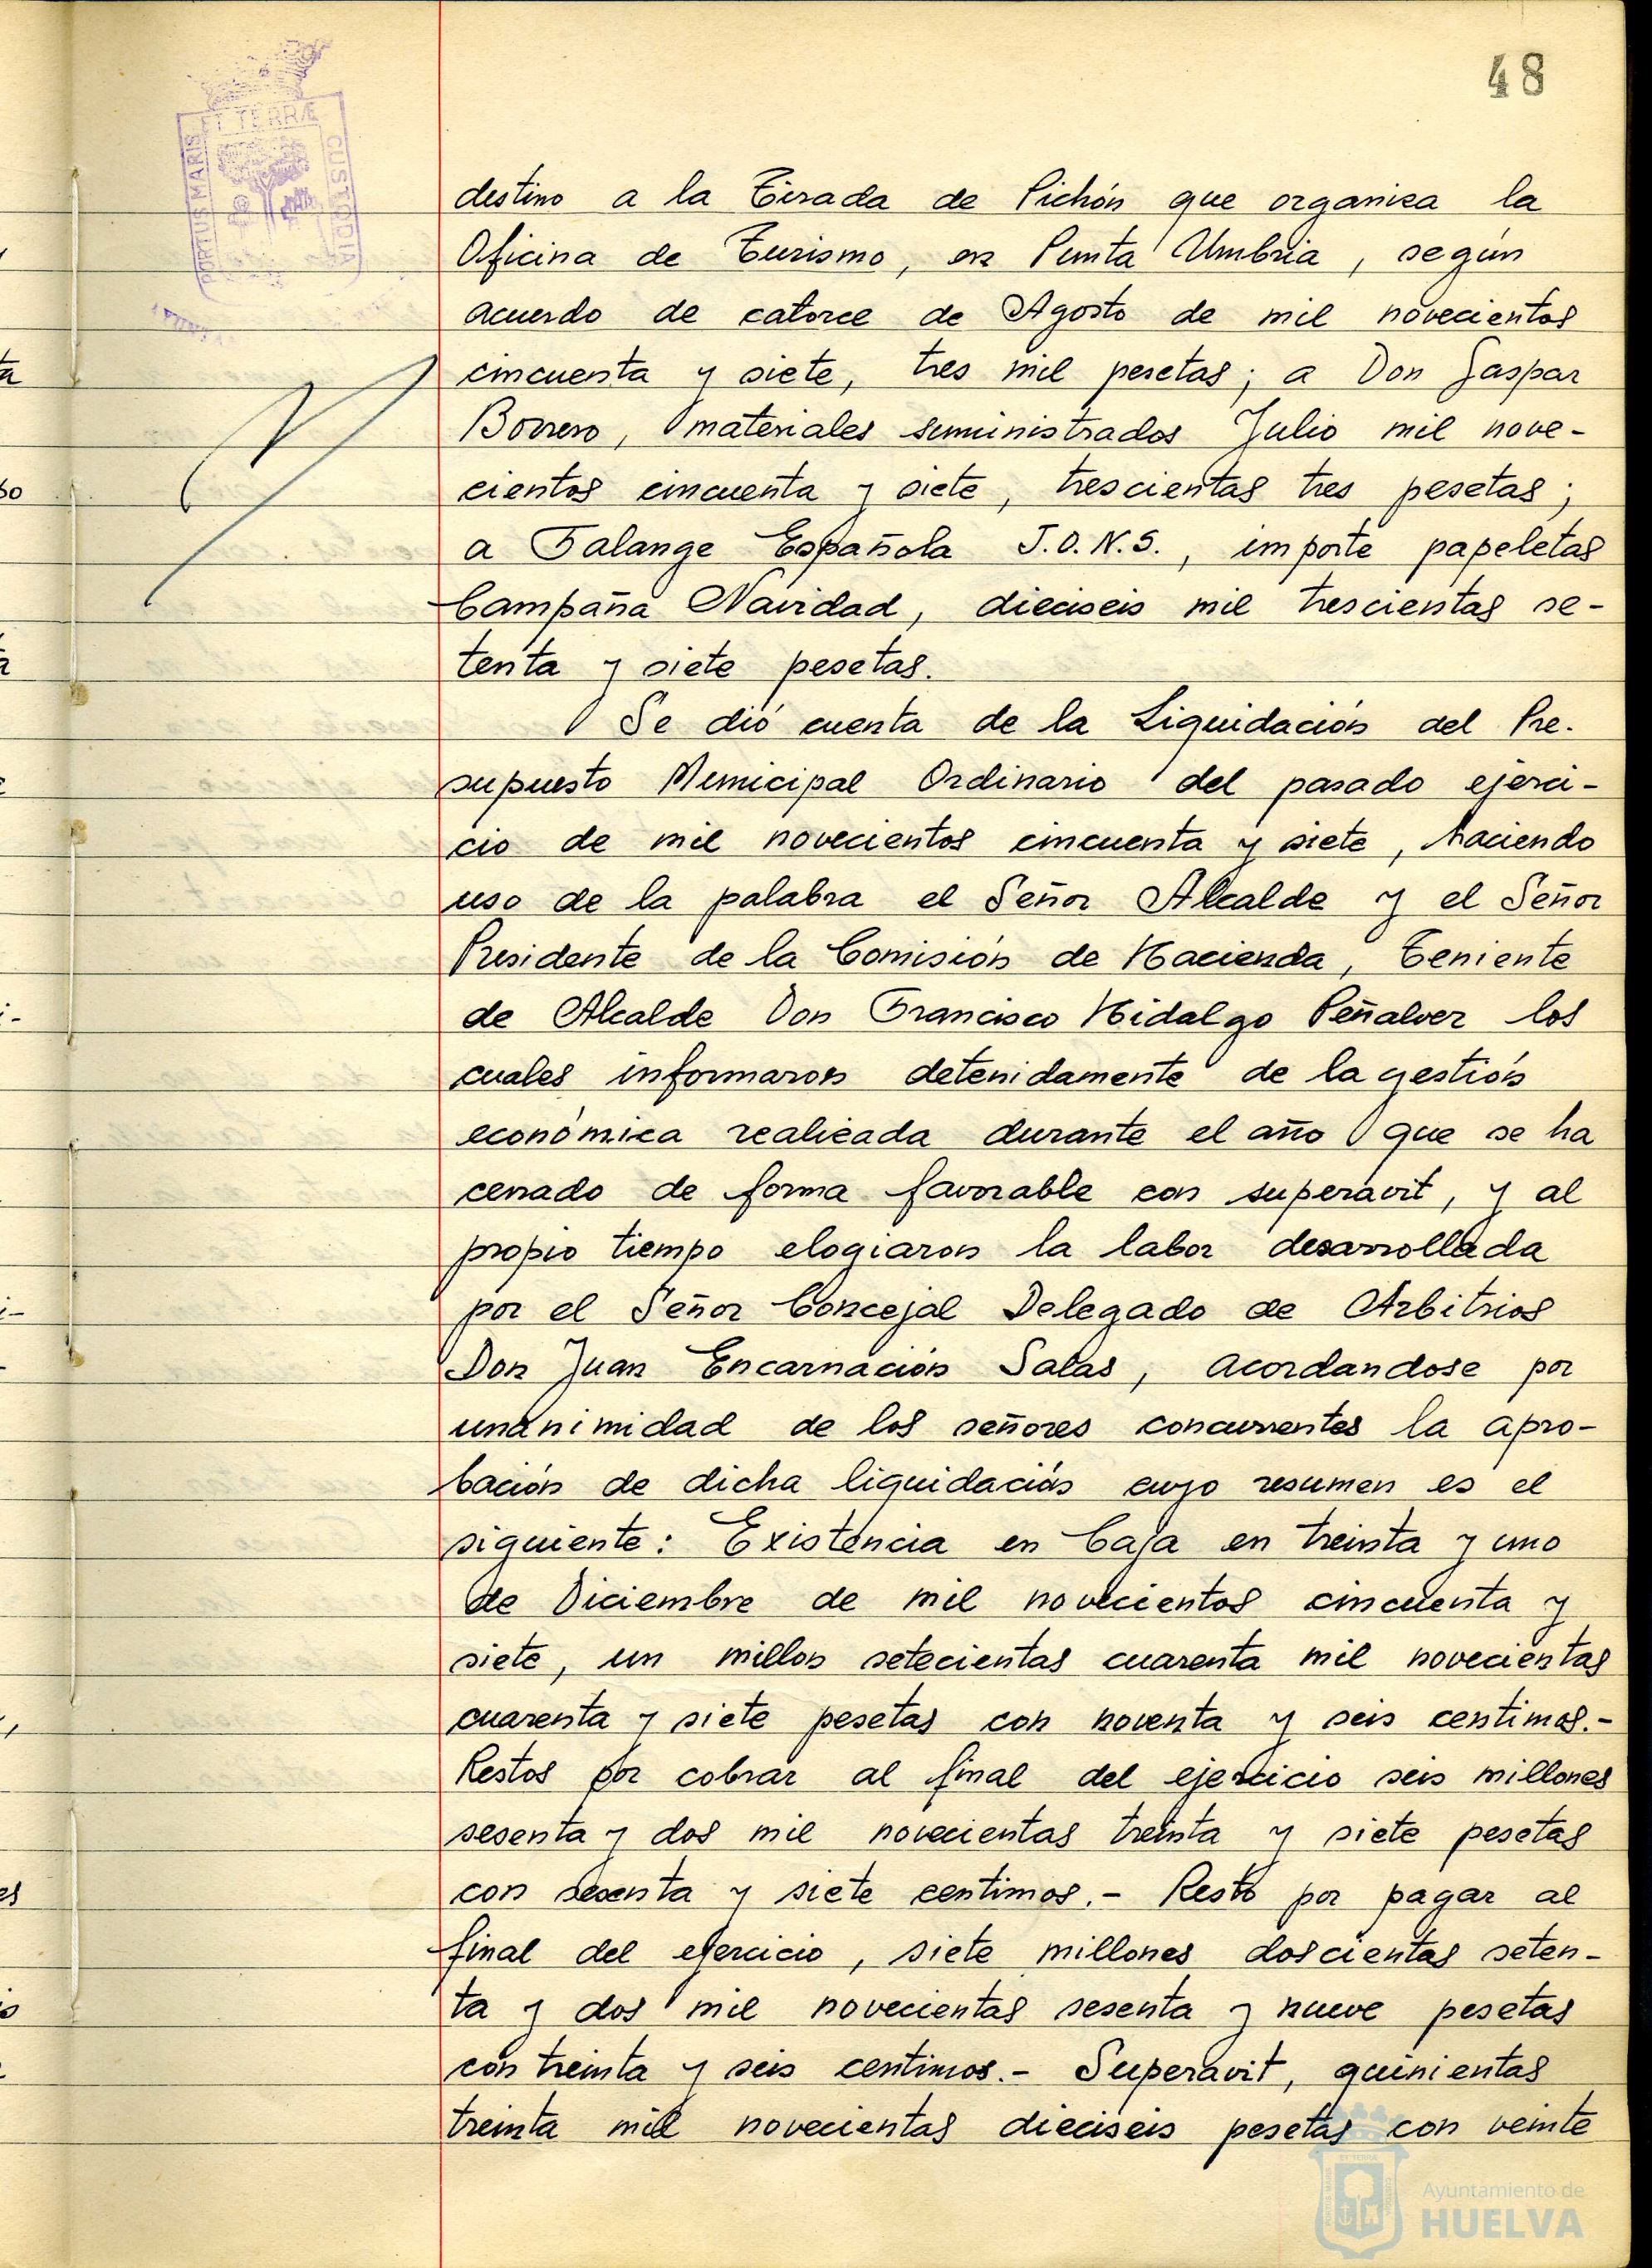 48
ET TERRÆ
PORTUS MARIS
CUSTODIA
destino a la Tirada de Pichón que organiza la
Oficina de Turismo, en Punta Umbria, según
acuerdo de catorce de Agosto de mil novecientos
cincuenta y siete, tres mil pesetas; a Don Gaspar
Borrero, materiales suministrados Julio mil nove-
cientos cincuenta y siete, trescientas tres pesetas;
a Falange Española J.O.N.S., importe papeletas
Campaña Navidad, dieciseis mil trescientas se-
tenta y siete pesetas.
Se dió cuenta de la Liquidación del Pre-
supuesto Municipal Ordinario del pasado ejerci-
cio de mil novecientos cincuenta y siete, haciendo
uso de la palabra el Señor Alcalde y el Señor
Presidente de la Comisión de Hacienda, Teniente
de Alcalde Don Francisco Hidalgo Peñalver los
cuales informaron detenidamente de la gestión
económica realizada durante el año que se ha
cerrado de forma favorable con superávit, y al
propio tiempo elogiaron la labor desarrollada
por el Señor Concejal Delegado de Arbitrios
Don Juan Encarnación Salas, acordandose por
unanimidad de los señores concurrentes la apro-
bación de dicha liquidación cuyo resumen es el
siguiente: Existencia en Caja en treinta y uno
de Diciembre de mil novecientos cincuenta y
siete, un millon setecientas cuarenta mil novecientas
cuarenta y siete pesetas con noventa y seis centimos.-
Restos por cobrar al final del ejercicio seis millones
sesenta y dos mil novecientas treinta y siete pesetas
con sesenta y siete centimos.- Resto por pagar al
final del ejercicio, siete millones doscientas seten-
ta y dos mil novecientas sesenta y nueve pesetas
con treinta y seis centimos.- Superavit, quinientas
treinta mil novecientas dieciseis pesetas con veinte
Ayuntamiento de
HUELVA